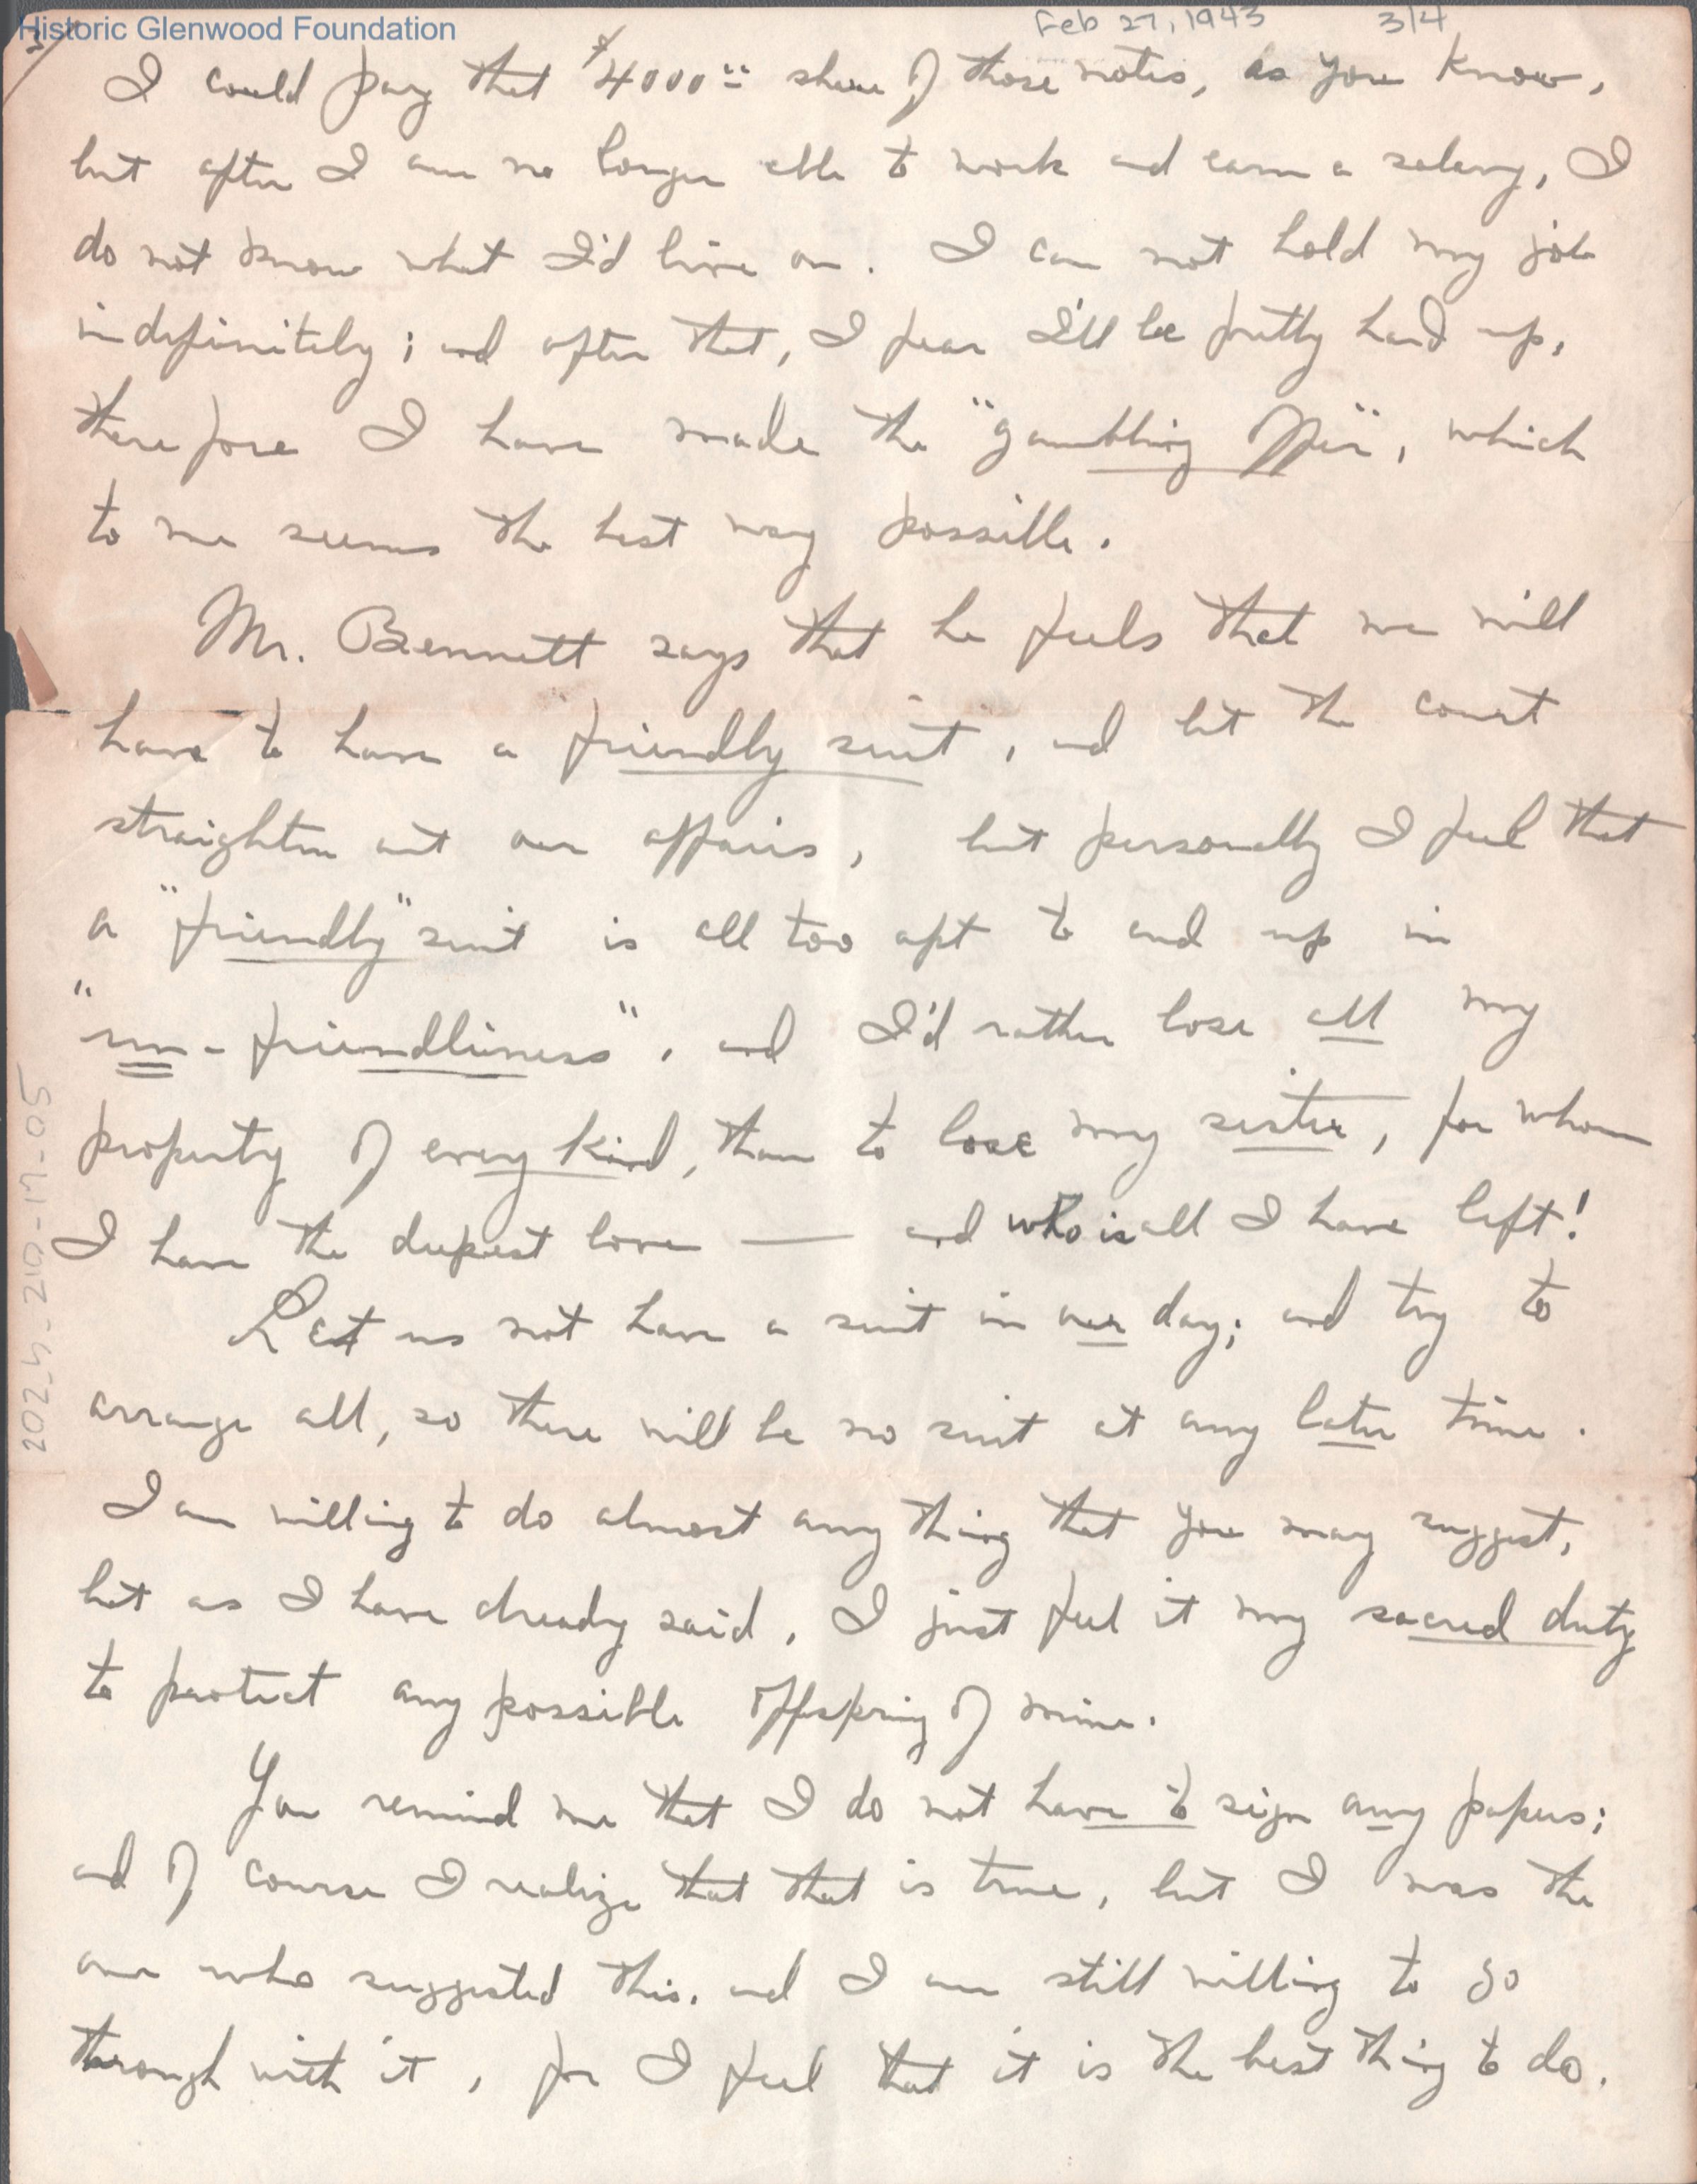 Historic Glenwood Foundation
Feb 27, 1943 3/4
3/
I could pay that $4000.00 share of those notes, as you know,
but after I am no longer able to work and earn a salary, I
do not know what I'd live on. I can not hold my job
indefinitely; and after that, I fear I'll be pretty hard up,
therefore I have made the "gambling offer", which
to me seems the best way possible.
Mr. Bennett says that he feels that we will
have to have a friendly suit, and let the court
straighten out our affairs, but personally I feel that
a "friendly" suit is all too apt to end up in
"un-friendliness", and I'd rather lose all my
property of every kind, than to lose my sister, for whom
I have the deepest love — and who is all I have left!
Let us not have a suit in our day; and try to
arrange all, so there will be no suit at any later time.
I am willing to do almost any thing that you may suggest,
but as I have already said, I just feel it my sacred duty
to protect any possible offspring of mine.
You remind me that I do not have to sign any papers;
and of course I realize that that is true, but I was the
one who suggested this, and I am still willing to go
through with it, for I feel that it is the best thing to do.